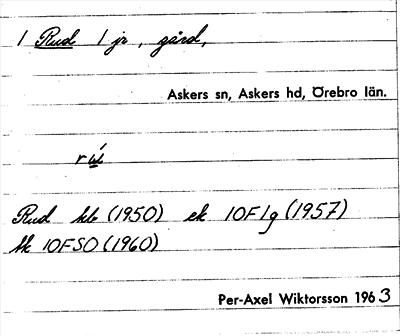 1 Rud 1 jr, gård,
Askers sn, Askers hd, Örebro län.
Rud hbl (1950) ek 10F1g (1957)
tk 10FSO (1960)
Per-Axel Wiktorsson 1963